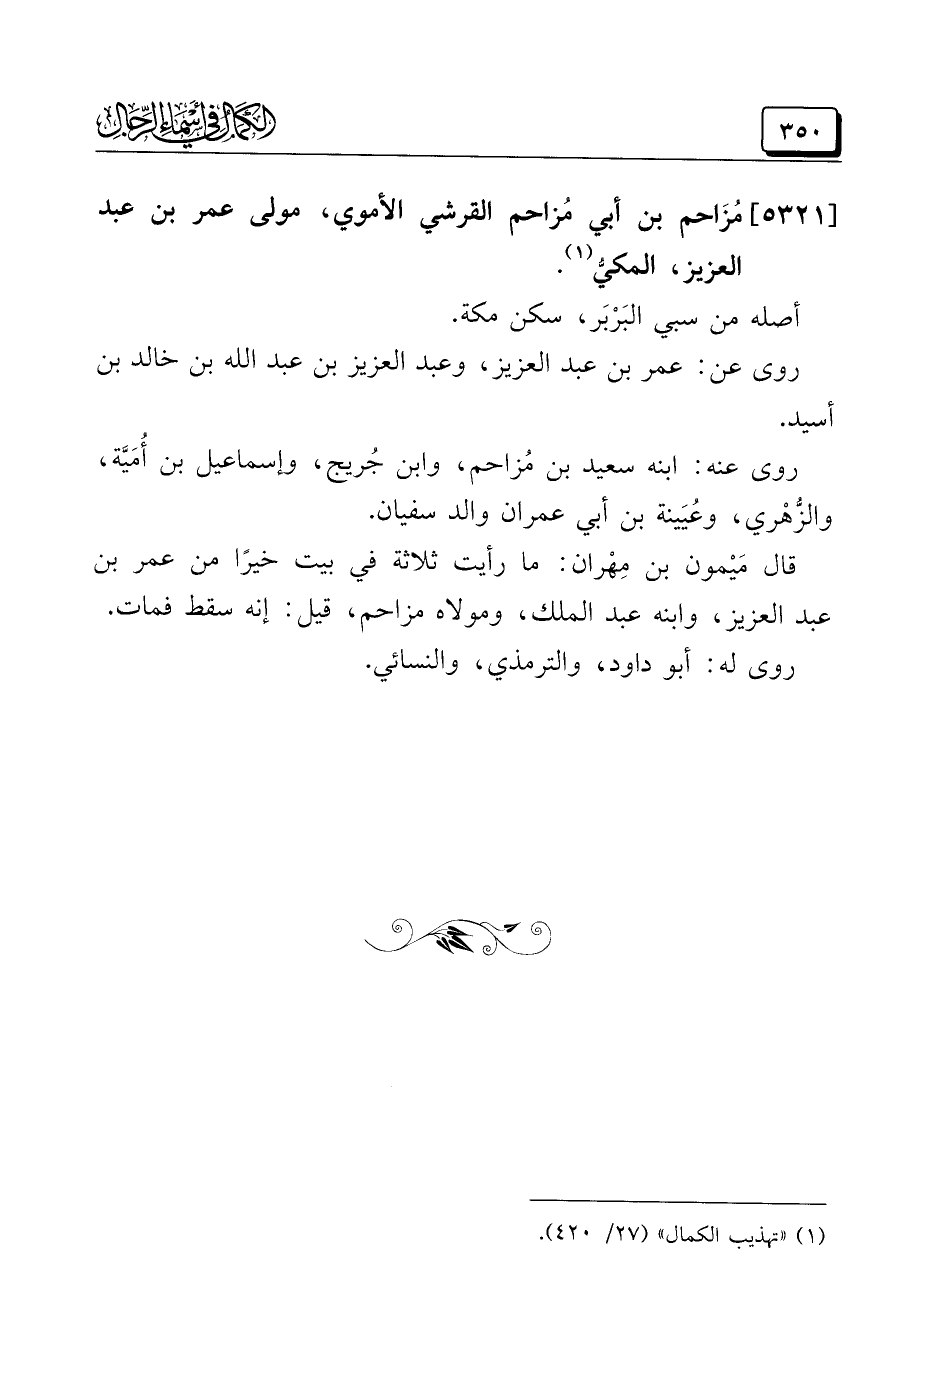 ٣٥٠
الكمال في أسماء الرجال
[٥٣٢١] مُزَاحم بن أبي مُزاحم القرشي الأموي، مولى عمر بن عبد
العزيز، المكيُّ(١).
أصله من سبي البَرْبَر، سكن مكة.
روى عن: عمر بن عبد العزيز، وعبد العزيز بن عبد الله بن خالد بن
أسيد.
روى عنه: ابنه سعيد بن مُزاحم، وابن جُريج، وإسماعيل بن أُمَيَّة،
والزُّهْري، وعُيَينة بن أبي عمران والد سفيان.
قال مَيْمون بن مِهْران: ما رأيت ثلاثة في بيت خيرًا من عمر بن
عبد العزيز، وابنه عبد الملك، ومولاه مزاحم، قيل: إنه سقط فمات.
روى له: أبو داود، والترمذي، والنسائي.
(١) «تهذيب الكمال» (٢٧/ ٤٢٠).